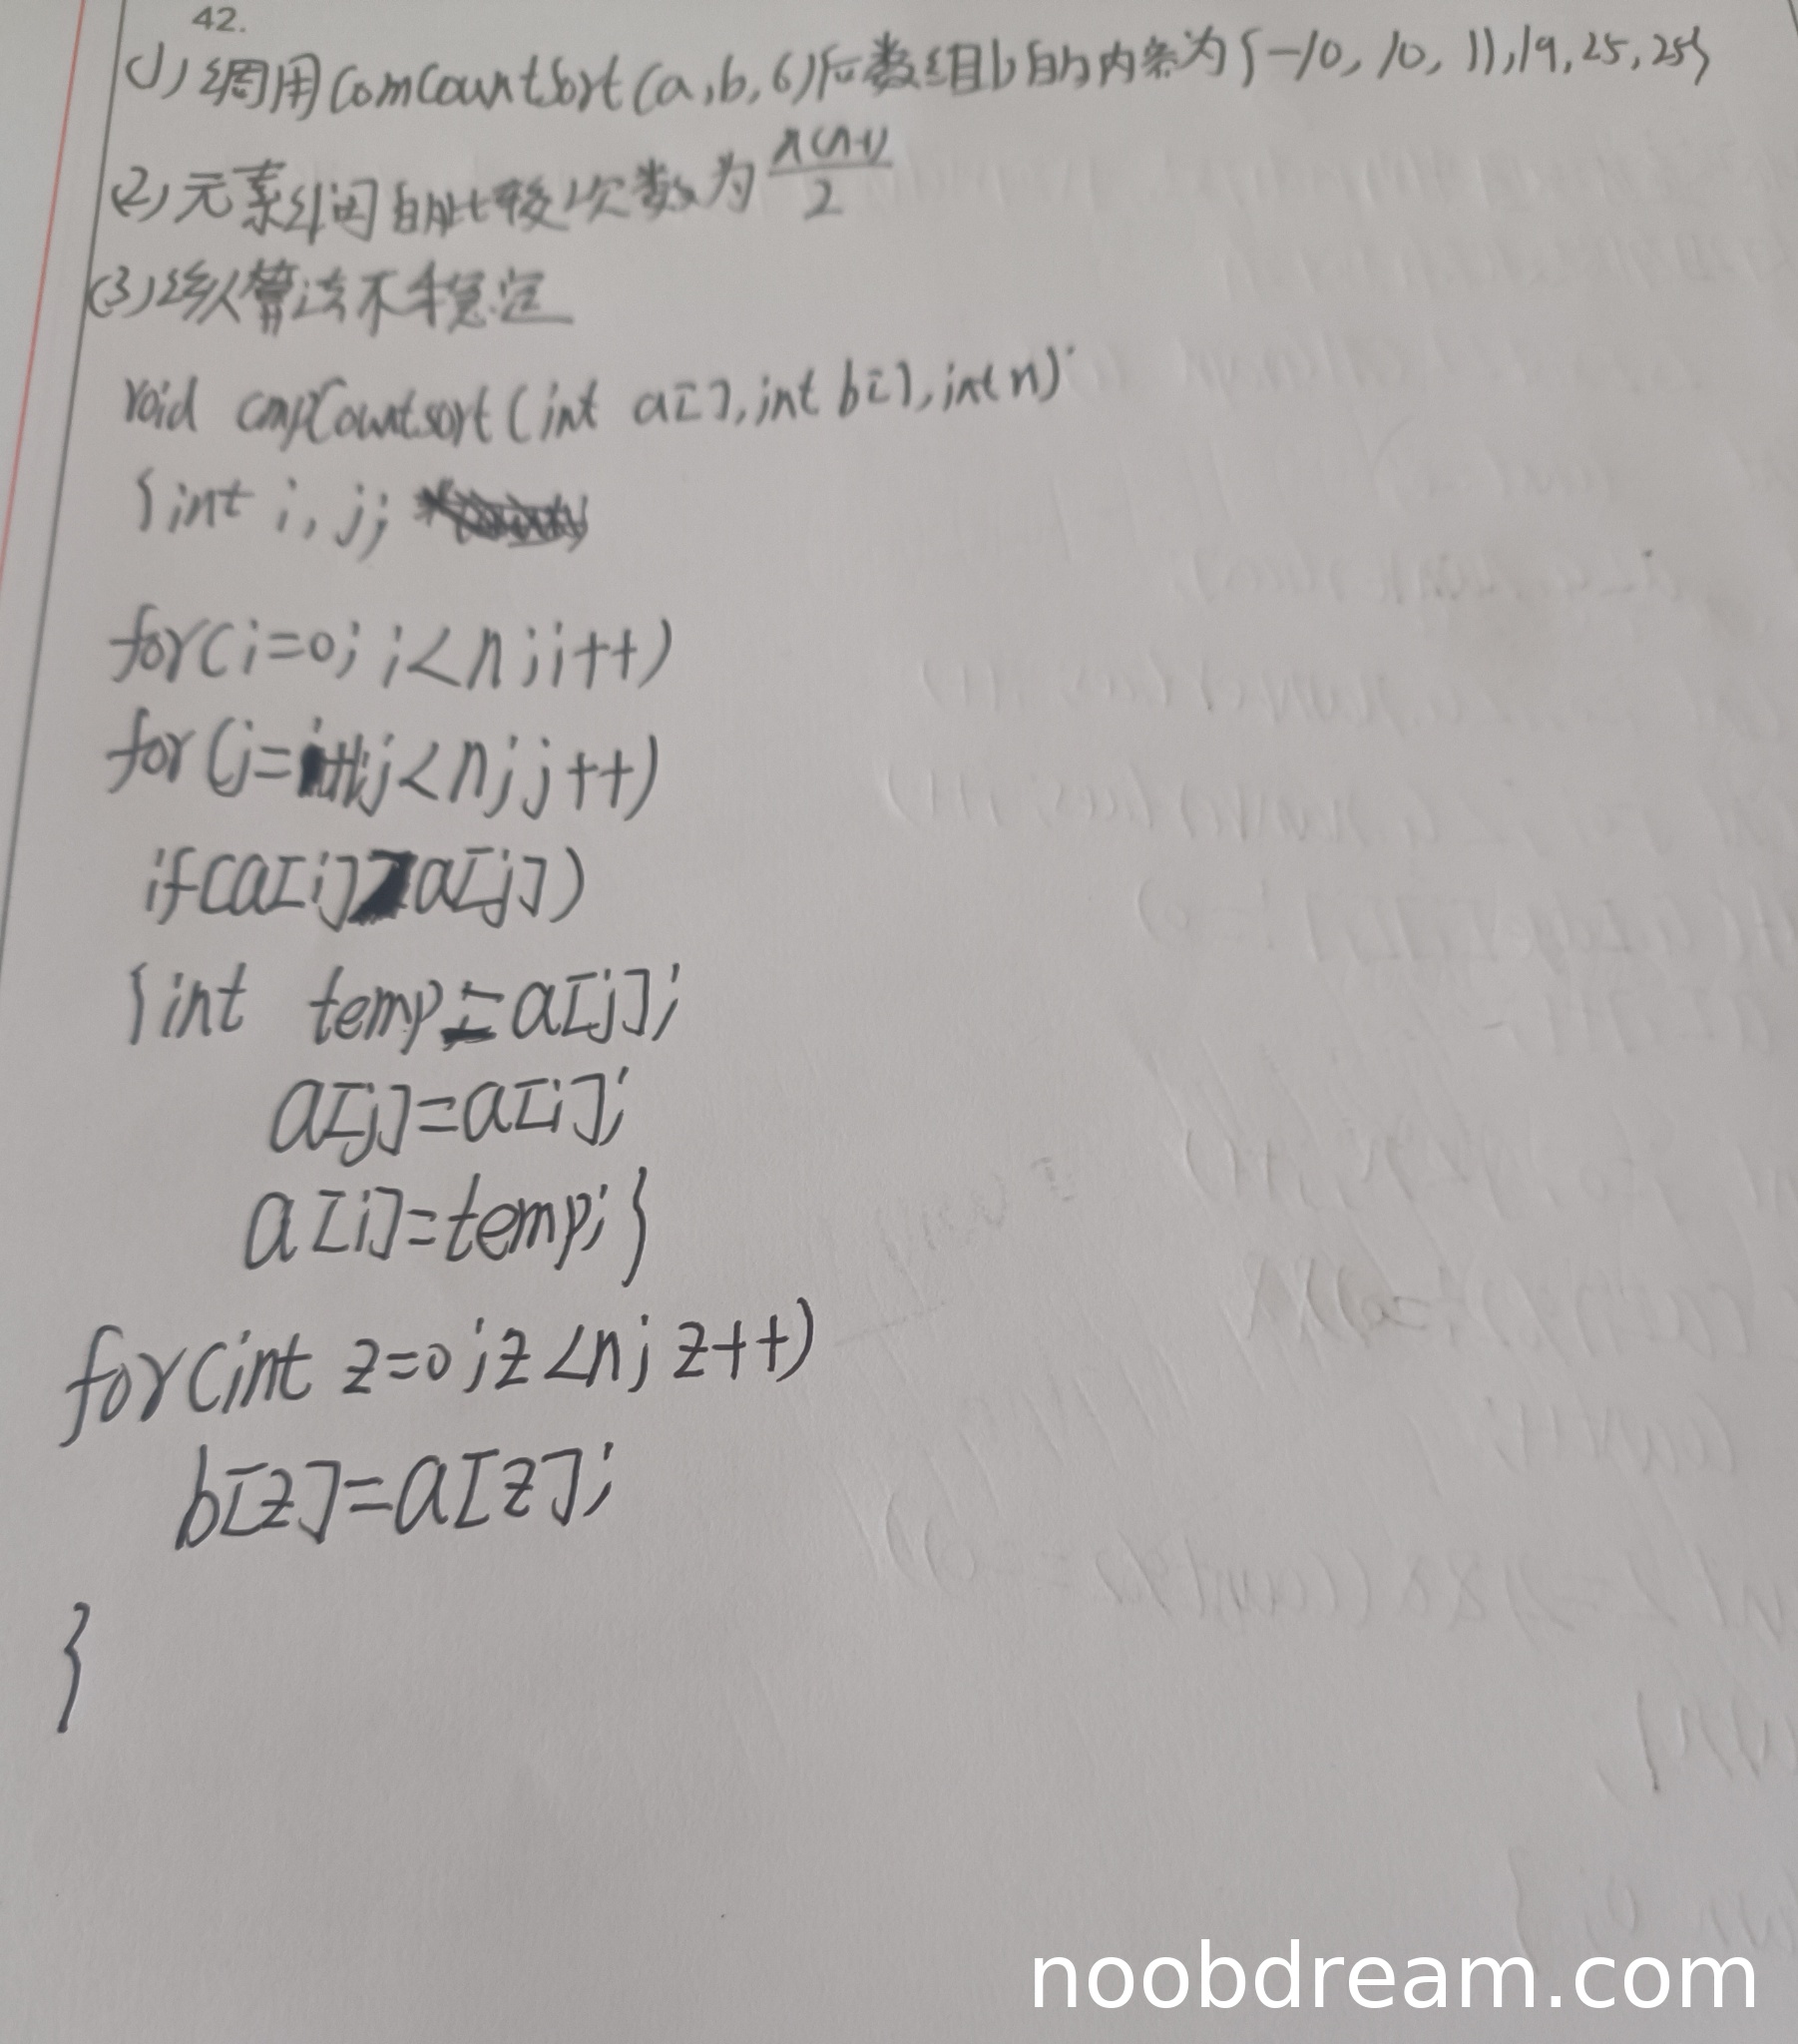 42.
(1)调用ComCountSort(a,b,6)后数组b的内容为{-10, 10, 11, 19, 25, 25}
(2)元素之间的比较次数为n(n-1)/2
(3)该算法不稳定
void cmpCountsort(int a[], int b[], int n)
{int i, j;
for(i=0; i<n; i++)
for(j=i+1;j<n;j++)
if(a[i]>a[j])
{int temp=a[j];
a[j]=a[i];
a[i]=temp;}
for(int z=0;z<n;z++)
b[z]=a[z];
}
noobdream.com